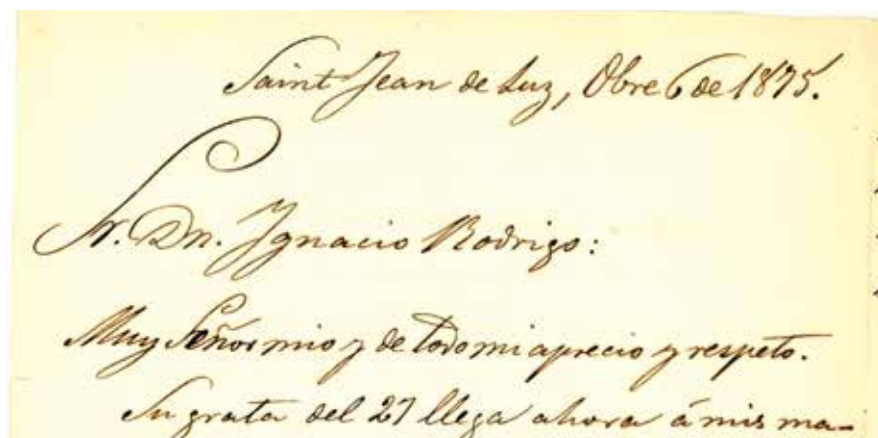 Saint Jean de Luz, Obre 6 de 1875.
Sr. Dn. Ignacio Rodrigo:
Muy Señor mio y de todo mi aprecio y respeto.
Su grata del 27 llega ahora á mis ma-